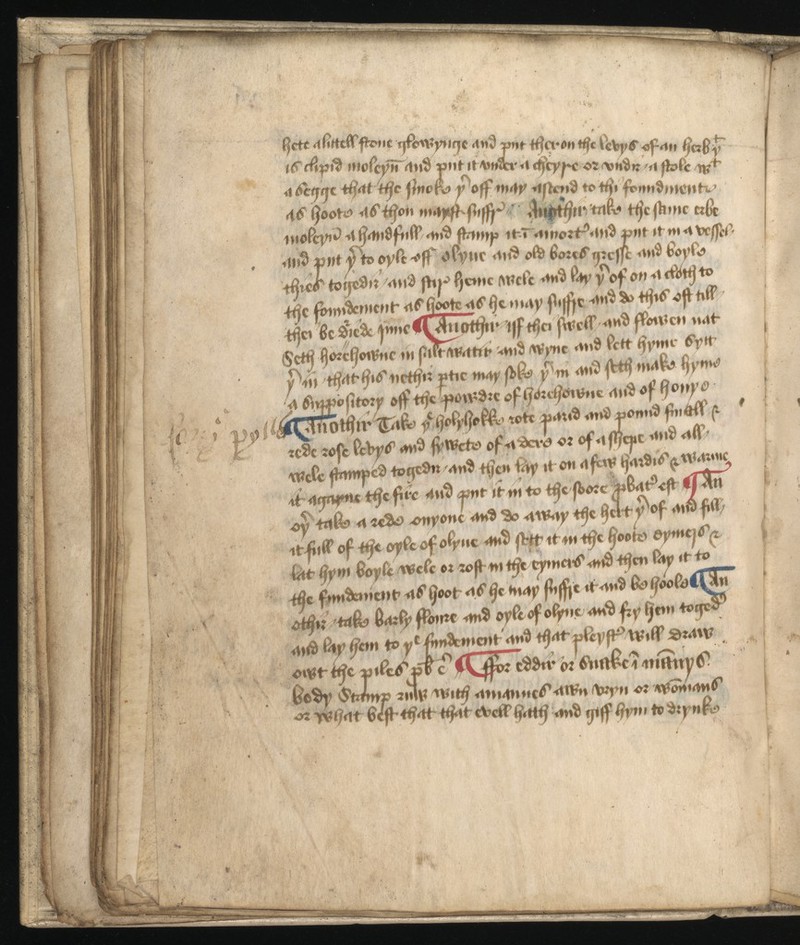 hete a litell stone glowynge and put ther on the levys of an herb þͭ
is clipid moleyn̄ and put it vnder a cheyre or vndir a stole wͭ
a segge that the smoke þ̉ off may ascend to thi foundment
as hoote as thou mayst suffir Anothir take the same erbe
moleyn̄ a handfull and stamp it ī a morter and put it in a vessel
and put þ̉ to oyle off olyue and old bores gresse and boyle
thies togedir and stir heme wele and lay þ̉ of on a cloth to
the foundement as hoote as he may suffre and do this oft till
thei be driede june ¶ Anothir yff thei swell and flowen nat
Seth horehowne in salt watir and wyne and lett hyme sytt
þ̉ in that his nethir ptie may soke þ̉ in and seth make hyme
a suppository off the powdre of horehowne and of hony
for þͤ pylles
¶ Anothir Take þͤ holyhokke rote parid and pound small &
rede rose levys and sywete of a dere or of a shepe and all
wele stamped togedir and then lay it on a few hardis & warme
it agayne the fire and put it in to the soore pbatͫ est ¶ An
oþ̉ take a rede onyone and do away the hert þ̉ of and fill
it full of the oyle of olyue and sett it in the hoote eymers &
lat hym boyle wele or rost in the eymers and then lay it to
the fundement as hoot as he may suffre it and be hoole ¶ An
othir take barly floure and oyle of olyue and fry hem toged̉
and lay hem to yͤ fundement and that pleystͬ will draw
owt the piles pb ē ¶ ffor eddir or snake ī mannys
body Stamp ruw with a mannes awn vryn or womans
or what best that that evell hath and giff hym to drynke